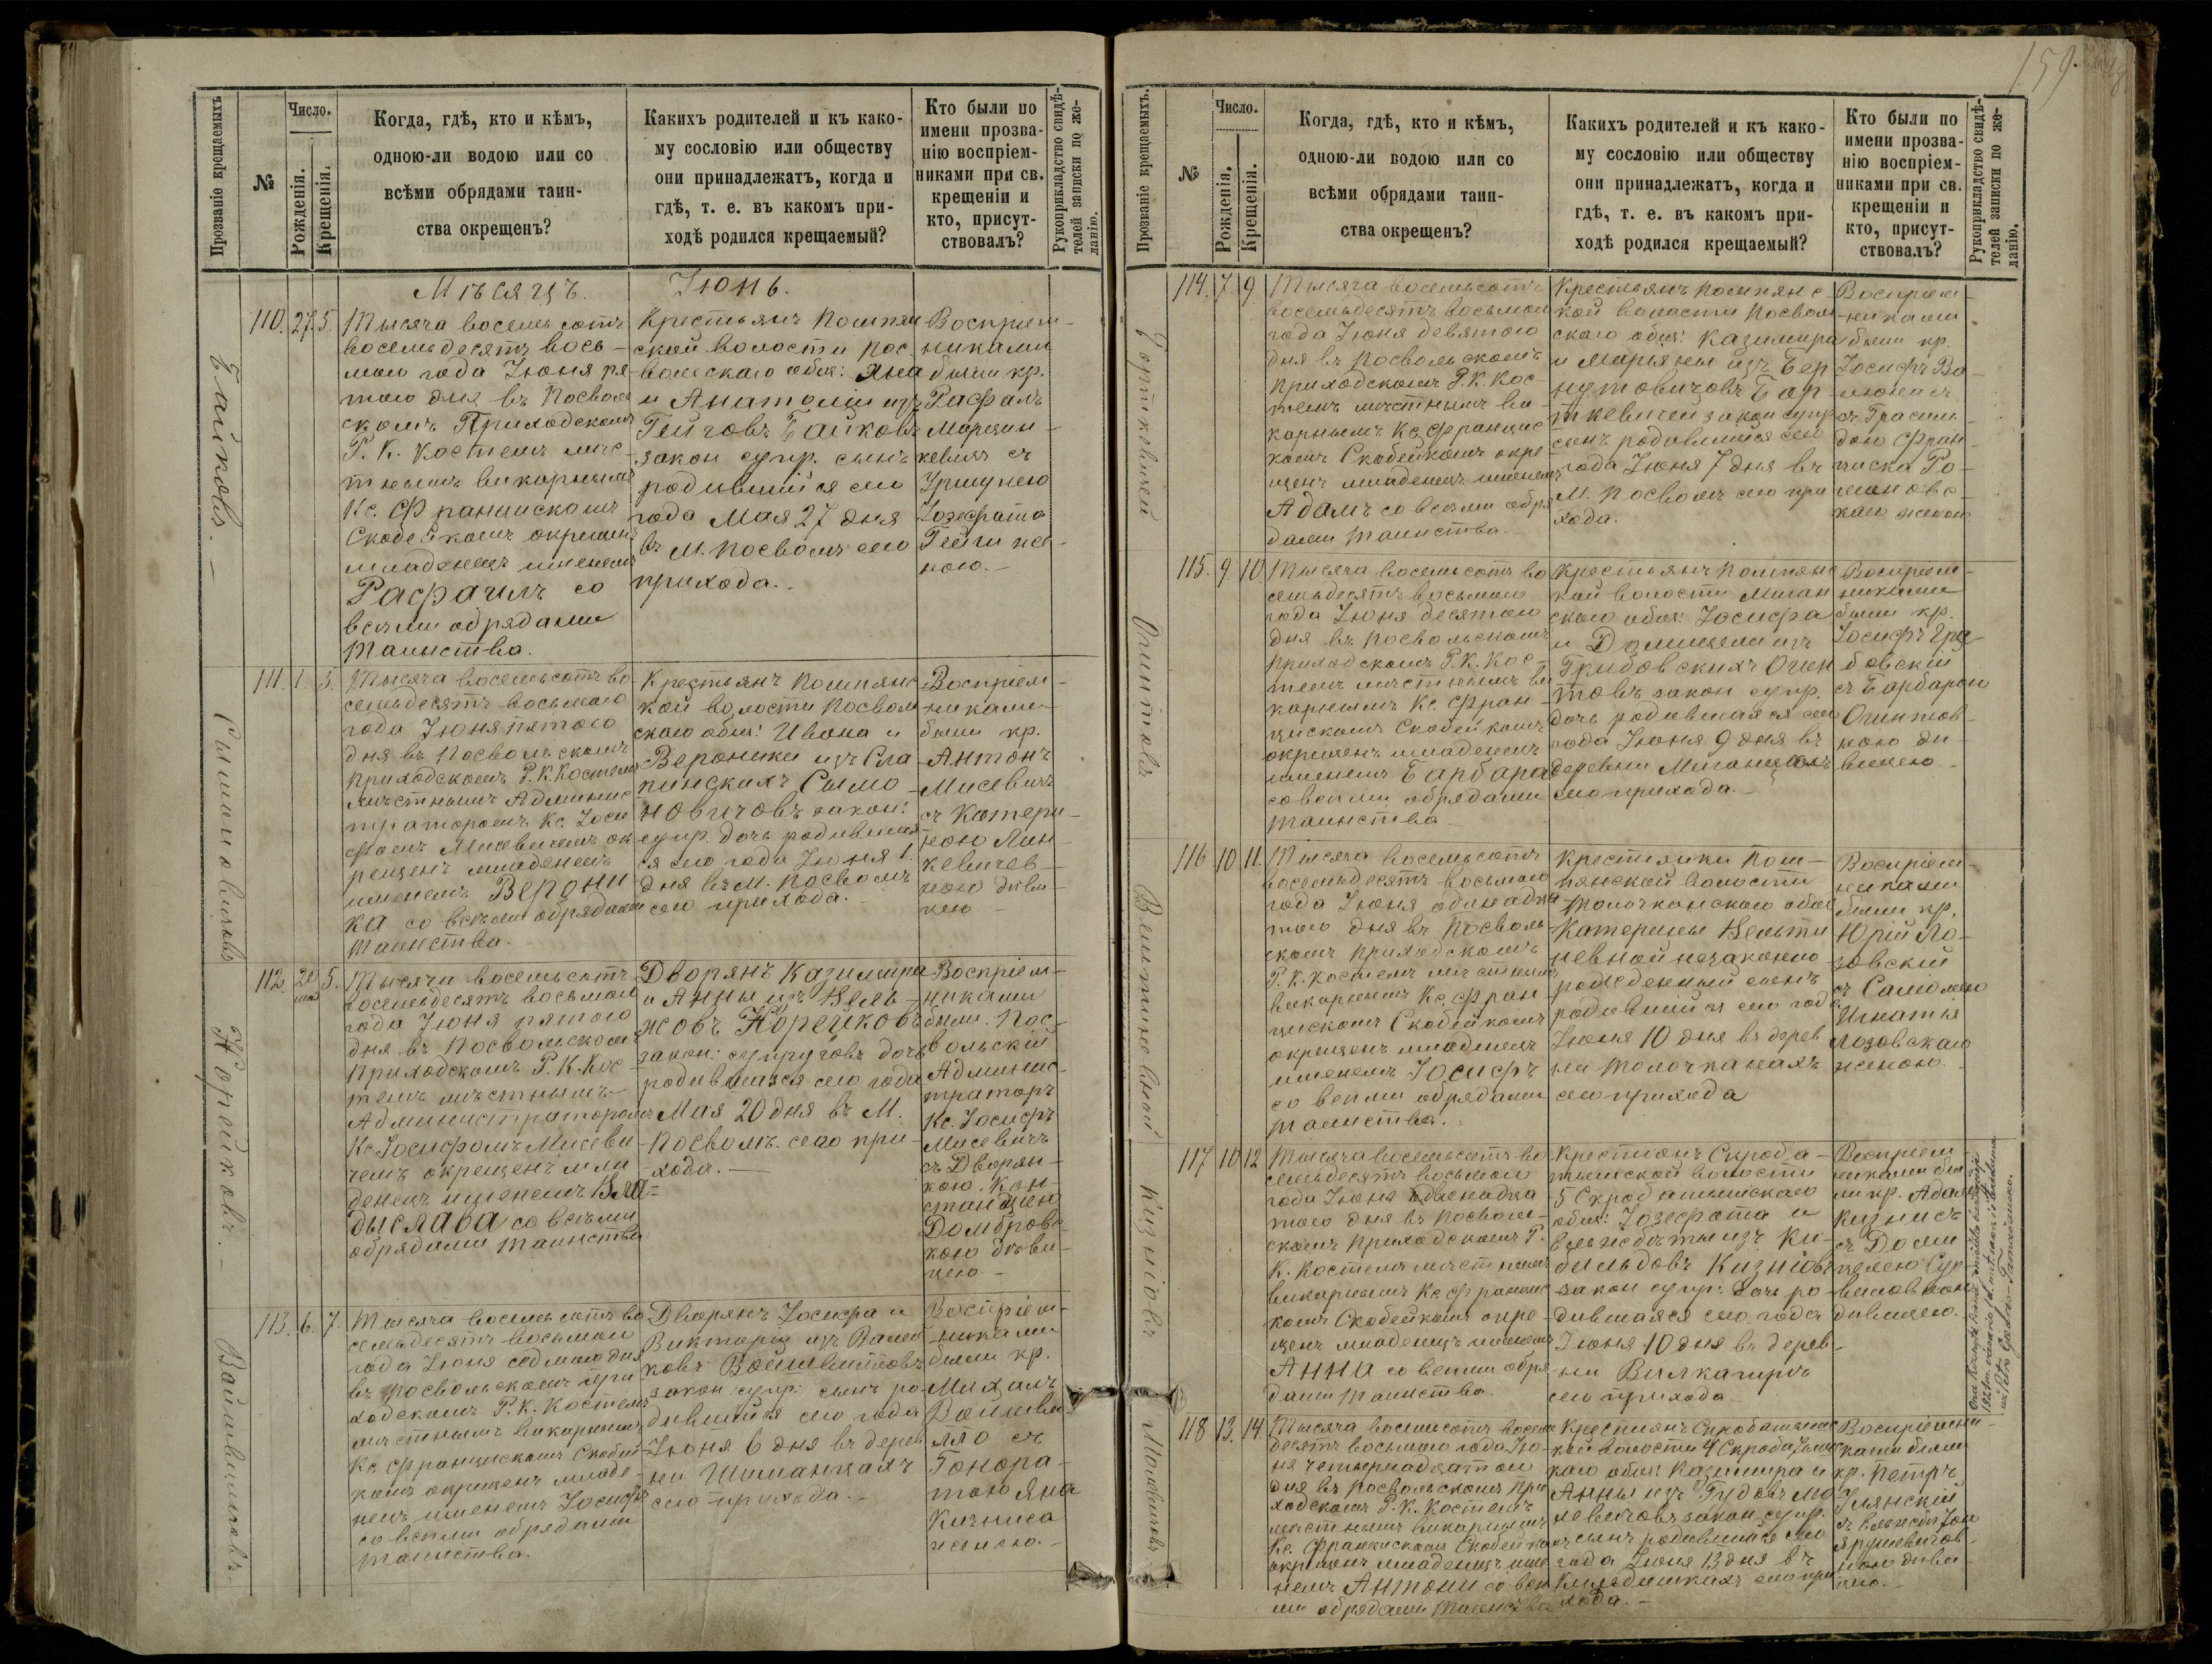 159.
Прозваніе крещаемыхъ
№
Число.
Рожденія.
Крещенія.
Когда, гдѣ, кто и кѣмъ,
одною-ли водою или со
всѣми обрядами таин-
ства окрещенъ?
Какихъ родителей и къ како-
му сословію или обществу
они принадлежатъ, когда и
гдѣ, т. е. въ какомъ при-
ходѣ родился крещаемый?
Кто были по
имени прозва-
нію воспріем-
никами при св.
крещеніи и
кто, присут-
ствовалъ?
Рукоприкладство свидѣ-
телей записки по же-
ланію.
Мѣсяцъ. Іюнь.
Байковъ.
110. 27. 5.
Тысяча восемь сотъ
восемьдесятъ вось-
мого года Іюня пя-
того дня въ Посволь
скомъ Приходскомъ
Р. К. Костелѣ мѣс-
тнымъ викарнымъ
Кс. Францискомъ
Скобейкомъ окрещенъ
младенецъ именемъ
Рафаилъ со
всѣми обрядами
таинства.
Крестьянъ Помпян
ской волости Пос
вольскаго общ: Яна
и Анатоліи изъ
Гейговъ Байковъ
закон супр. сынъ
родившійся сего
года Мая 27 дня
въ М. Посволѣ сего
прихода.
Воспріем-
никами
были кр.
Рафалъ
Марцин-
кевичъ съ
Уршулею
Іозефата
Гейги же-
ною.
111. 1. 5.
Тысяча восемьсотъ во
семьдесятъ восьмаго
года Іюня пятого
дня въ Посвольскомъ
Приходскомъ Р. К. Костелѣ
мѣстнымъ Админис
траторомъ Кс. Іоси
фомъ Мисевичемъ ок
рещенъ младенецъ
именемъ Верони
ка со всѣми обрядами
таинства.
Крестьянъ Помпянс
кой волости Посволь
скаго общ: Ивана и
Вероники изъ Сла
пинскихъ Сымо
новичовъ закон:
супр. дочь родившая
ся сего года Іюня 1.
дня въ М. Посволѣ
сего прихода.
Воспріем-
никами
были кр.
Антонъ
Мисевичъ
съ Катери-
ною Лин-
кевичев-
ною дѣви
цею
Корейковъ.
112. 20 мая 5.
Тысяча восемьсотъ
восемьдесятъ восьмаго
года Іюня пятого
дня въ Посвольскомъ
Приходскомъ Р. К. Кос
телѣ мѣстнымъ
Администраторомъ
Кс. Іосифомъ Мисеви
чемъ окрещенъ мла
денецъ именемъ Вла=
дыслава со всѣми
обрядами таинства
Дворянъ Казимира
и Анны изъ Вель-
жовъ Корейковъ
закон: супруговъ дочь
родившаяся сего года
Мая 20 дня въ М.
Посволѣ. сего при-
хода.
Воспріем-
никами
были. Пос-
вольскій
Админис-
траторъ
Кс. Іосифъ
Мисевичъ
съ Дворян-
кою. Кон-
станціею
Домбровс-
кою дѣви-
цею.
113. 6. 7.
Тысяча восемь сотъ во
семьдесятъ восьмого
года Іюня седмаго дня
въ Посвольскомъ при
ходскомъ Р. К. Костелѣ
мѣстнымъ викарнымъ
Кс. Францискомъ Скобей
комъ окрещенъ младе
нецъ именемъ Іосифъ
со всѣми обрядами
таинства.
Дворянъ Іосифа и
закон супр: сынъ ро
дившійся сего года
Іюня 6 дня въ дерев
ни Шиманцахъ
сего прихода.
Воспріем-
никами
были кр.
Михалъ
съ
Гонора-
тою Яна
женою.
Прозваніе крещаемыхъ.
№
Число.
Рожденія.
Крещенія.
Когда, гдѣ, кто и кѣмъ,
одною-ли водою или со
всѣми обрядами таин-
ства окрещенъ?
Какихъ родителей и къ како-
му сословію или обществу
они принадлежатъ, когда и
гдѣ, т. е. въ какомъ при-
ходѣ родился крещаемый?
Кто были по
имени прозва-
нію воспріем-
никами при св.
крещеніи и
кто, присут-
ствовалъ?
Рукоприкладство свидѣ-
телей записки по же-
ланію.
114. 7. 9.
Тысяча восемьсотъ
восемьдесятъ восьмого
года Іюня девятого
дня въ Посвольскомъ
Приходскомъ Р. К. Кос-
телѣ мѣстнымъ ви
карнымъ Кс. Францис
комъ Скобейкомъ окре
щенъ младенецъ именемъ
Адамъ со всѣми обря
дами таинства.
Крестьянъ Помпянс
кой волости Посволь
скаго общ: Казимира
и Марьяны изъ Бер
нутовичовъ Бор
ткевичей закон супр
сынъ родившійся сего
года Іюня 7 дня въ
М. Посволѣ сего при
хода.
Воспріем-
никами
были кр.
Іосифъ
циска Ро-
мановс-
каго женою
Огинтовъ
115. 9. 10.
Тысяча восемьсотъ во
семьдесятъ восьмого
года Іюня десятого
дня въ Посвольскомъ
Приходскомъ Р. К. Кос-
телѣ мѣстнымъ ви
карнымъ Кс. Фран-
цискомъ Скобейкомъ
окрещенъ младенецъ
именемъ Барбара
со всѣми обрядами
таинства
Крестьянъ Помпянс
кой волости
скаго общ: Іосифа
и Доминцели изъ
Грибовскихъ Огин
товъ закон супр.
дочь родившаяся сего
года Іюня 9 дня въ
деревни
сего прихода.
Воспріем-
никами
были кр.
Іосифъ Гри-
бовскій
съ Барбарою
Огинтов-
ною дѣ-
вицею.
116. 10. 11.
Тысяча восемьсотъ
восемьдесятъ восьмого
года Іюня одинадца
того дня въ Посволь-
скомъ Приходскомъ
Р. К. Костелѣ мѣстнымъ
викарнымъ Кс. Фран-
цискомъ Скобейкомъ
окрещенъ младенецъ
именемъ Іосифъ
со всѣми обрядами
таинства.
Крестьянки Пом-
пянской волости
Толочканскаго общ:
Катерины Вельти
невной незаконно
рожденный сынъ
родившійся сего года
Іюня 10 дня въ дерев
ни Толочканахъ
сего прихода
Воспріем-
никами
были кр.
Юрій Ло-
зовскій
съ Саломею
Игнатія
Лозовскаго
женою.
117. 10. 12.
Тысяча восемьсотъ во
семьдесятъ восьмого
года Іюня двенадца
того дня въ Посволь-
скомъ Приходскомъ Р.
К. Костелѣ мѣстнымъ
викарнымъ Кс. Францис
комъ Скобейкомъ окре
щенъ младенецъ именемъ
Анна со всѣми обря
дами таинства.
Крестьянъ Скроба-
тишской волости
общ: Іозефата и
Ельжбѣты изъ Ки-
бильдовъ
закон супр. дочь ро
дившаяся сего года
Іюня 10 дня въ дерев-
ни
сего прихода.
Воспріем-
никами бы
ли кр. Адамъ
съ Доми
целею
дѣвицею.
118. 13. 14.
Тысяча восемьсотъ восем
десятъ восьмого года Ію-
ня четырнадцатого
дня въ Посвольскомъ При
ходскомъ Р. К. Костелѣ
мѣстнымъ викарнымъ
Кс. Францискомъ Скобейкомъ
окрещенъ младенецъ име
немъ Антони со всѣ
ми обрядами таинства
каго общ: Казимира и
Анны изъ Гудовъ
закон супр.
сынъ родившійся сего
года Іюня 13 дня въ
сего при
хода.
были
кр. Петръ
ною дѣви
цею.